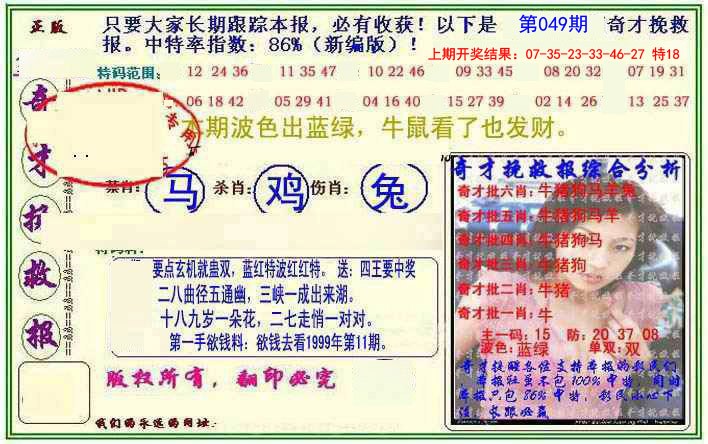 正版
只要大家长期跟踪本报，必有收获！以下是 第049期 奇才挽救
报。中特率指数：86%（新编版）！
上期开奖结果：07-35-23-33-46-27 特18
特码范围：
12 24 36 11 35 47 10 22 46 09 33 45 08 20 32 07 19 31
06 18 42 05 29 41 04 16 40 15 27 39 02 14 26 13 25 37
本期波色出蓝绿，牛鼠看了也发财。
奇才
救报
禁肖：马 杀肖：鸡 伤肖：兔
要点玄机就蛊双，蓝红特波红红特。 送：四王要中奖
二八曲径五通幽，三峡一成出来湖。
十八九岁一朵花，二七走悄一对对。
第一手欲钱料：欲钱去看1999年第11期。
版权所有，翻印必究
我们的永远的网址：
奇才挽救报综合分析
奇才批六肖：牛猪狗马羊兔
奇才批五肖：牛猪狗马羊
奇才批四肖：牛猪狗马
奇才批三肖：牛猪狗
奇才批二肖：牛猪
奇才批一肖：牛
主一码：15 防：20 37 08
波色：蓝绿 单双：双
奇才挽救各位支持本报的彩民们
本报虽不包100%中特，同时
本报只包86%中特，彩民小心下
注，长跟必赢